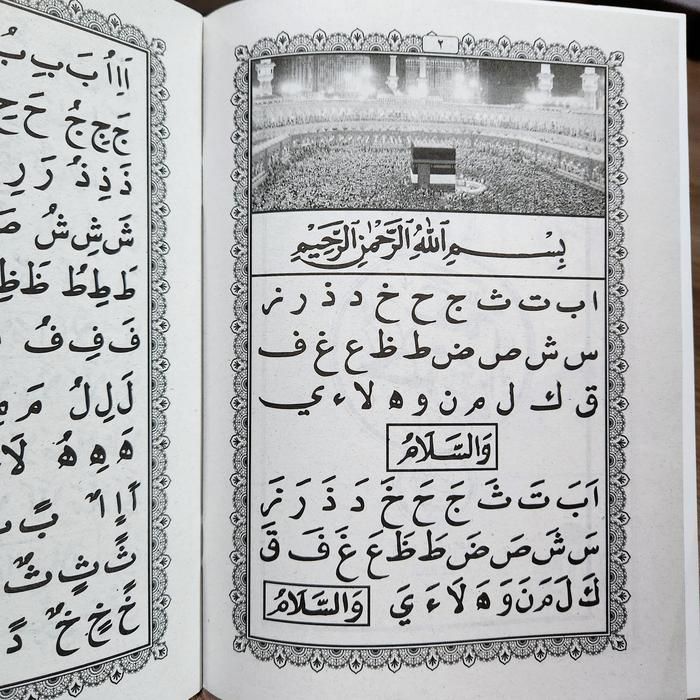 ٢
بِسْمِ اللهِ الرَّحْمٰنِ الرَّحِيْمِ
ا ب ت ث ج ح خ د ذ ر ز
س ش ص ض ط ظ ع غ ف
ق ك ل م ن و ه لا ء ي
وَالسَّلَامُ
اَ بَ تَ ثَ جَ حَ خَ دَ ذَ رَ زَ
سَ شَ صَ ضَ طَ ظَ عَ غَ فَ قَ
كَ لَ مَ نَ وَ هَ لَا ءَ يَ وَالسَّلَامُ
اَ اِ اُ بَ بِ بُ
جَ جِ جُ حَ حِ
ذَ ذِ ذُ رَ رِ
شَ شِ شُ صَ
طَ طِ طُ ظَ ظِ
فَ فِ فُ
لَ لِ لُ مَ مِ
هَ هِ هُ لَا
اً اٍ اٌ بً
ثً ثٍ ثٌ
خً خٍ خٌ دً